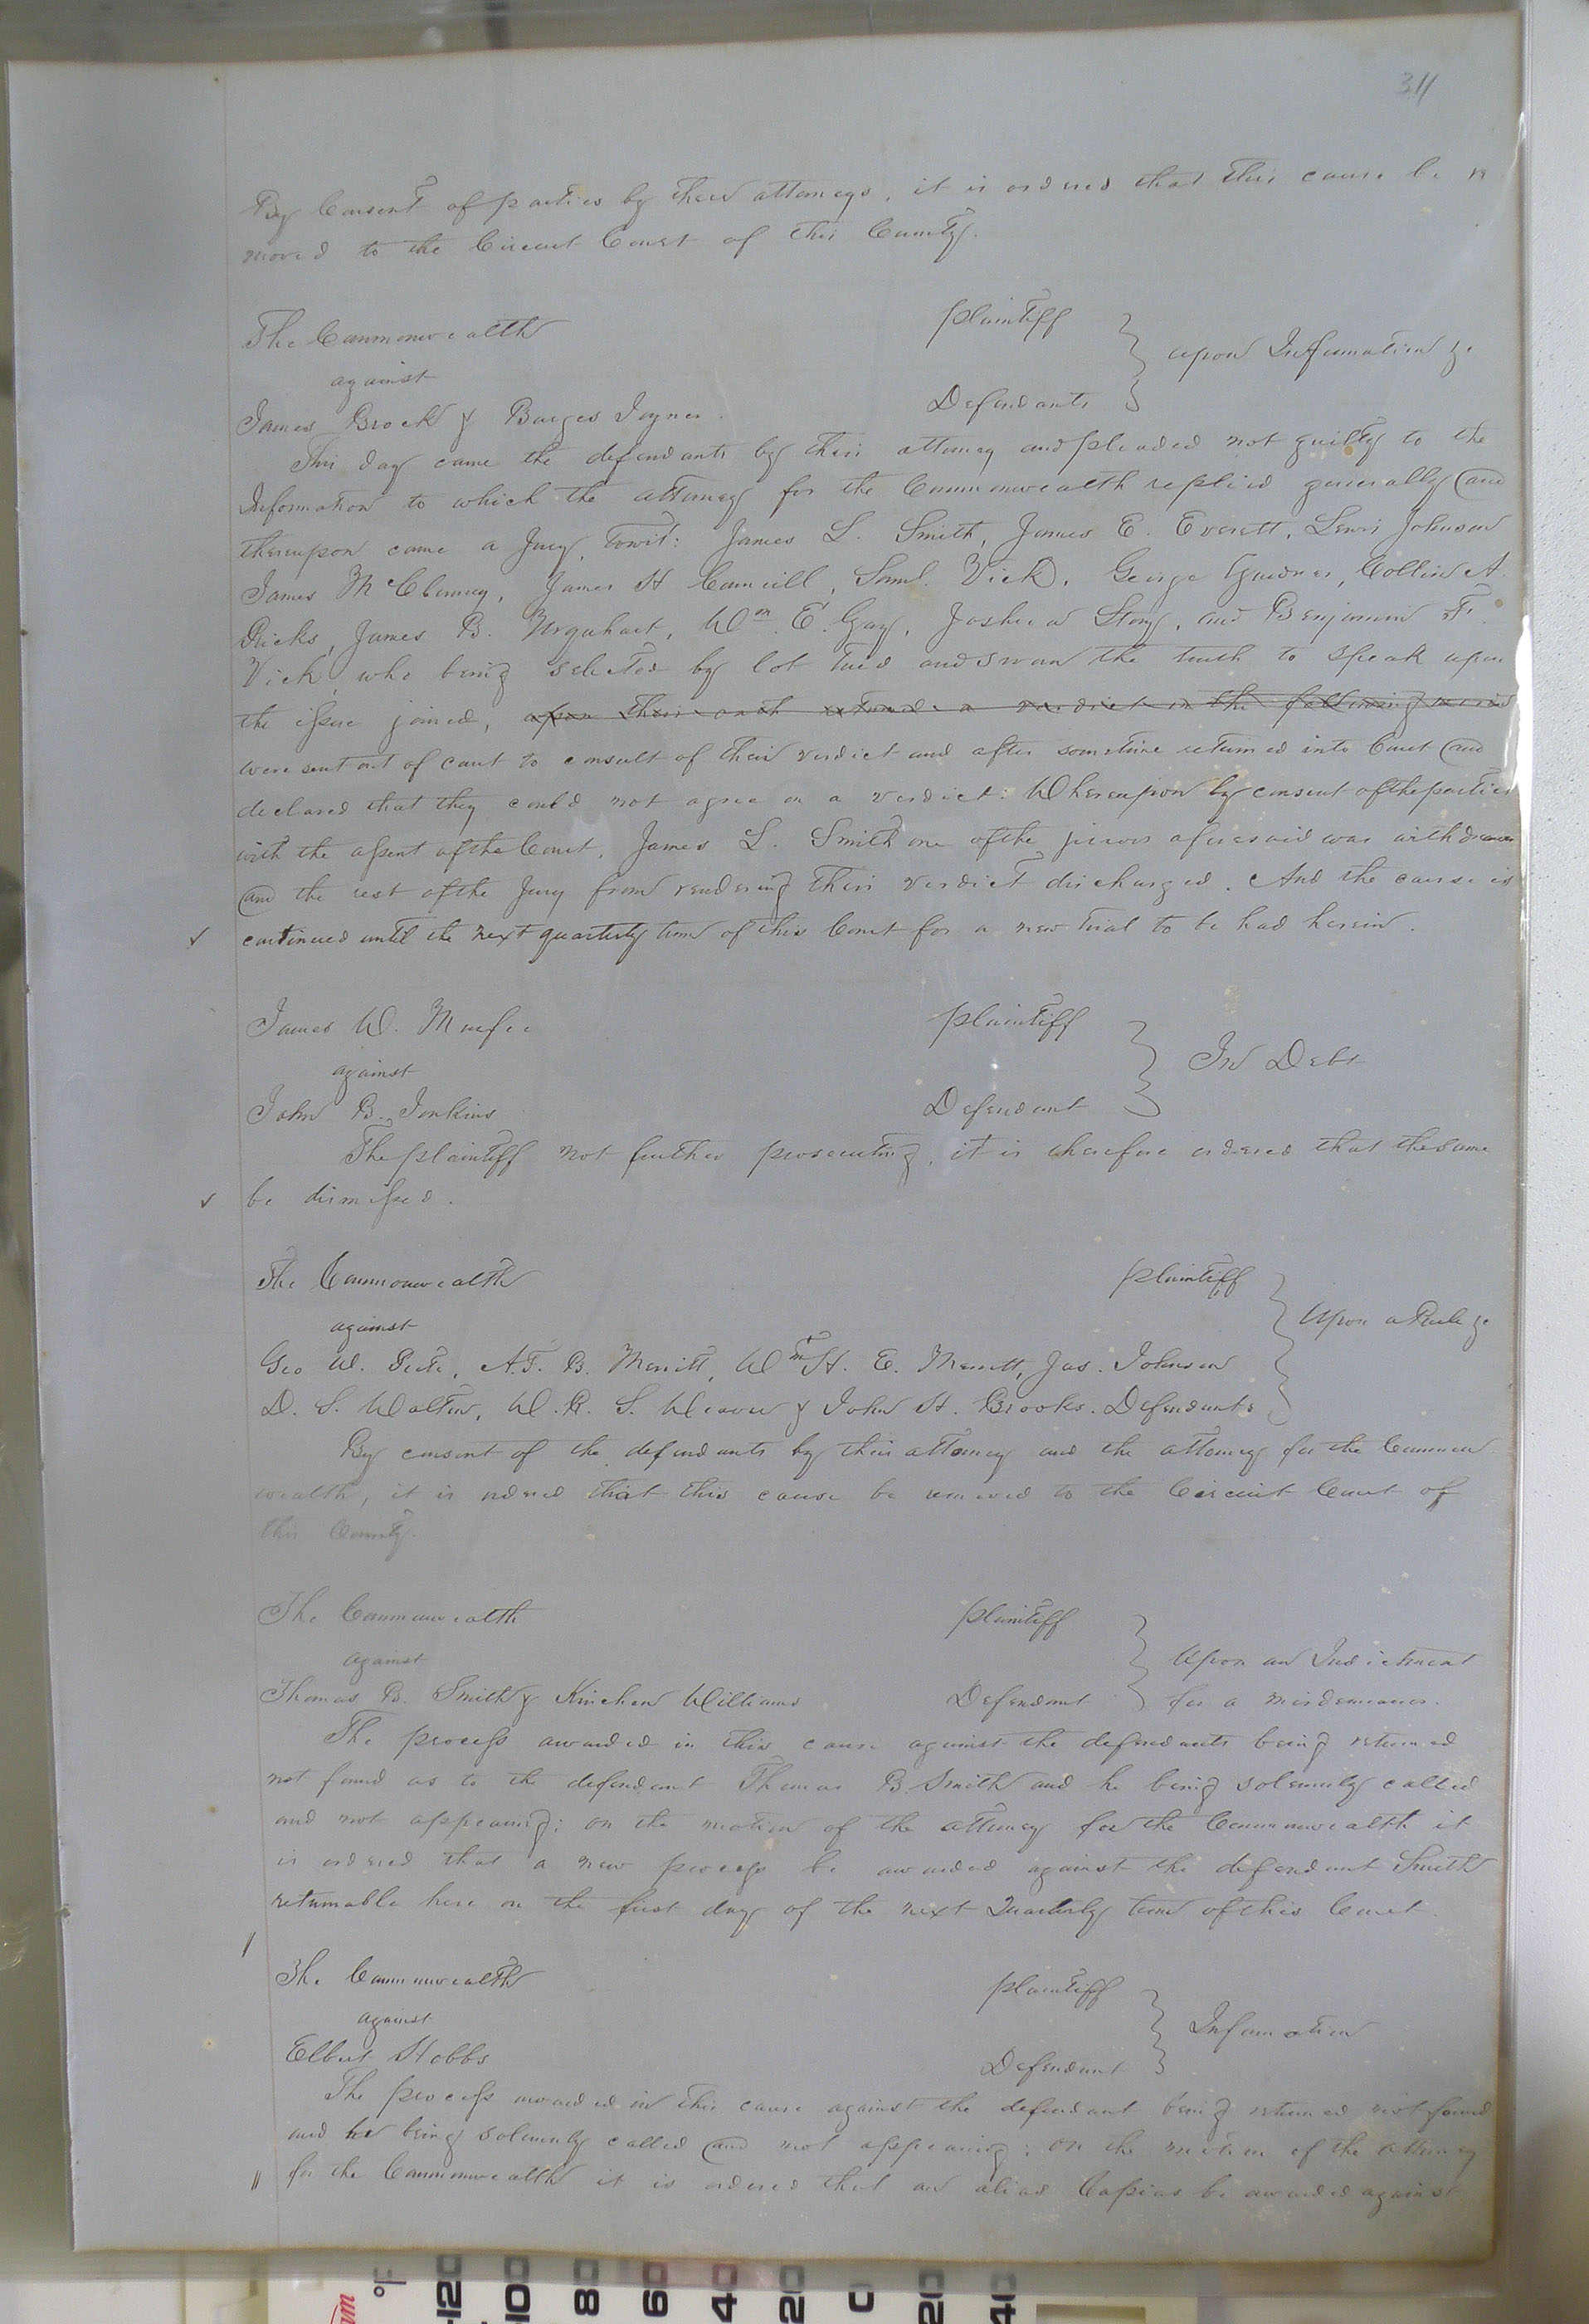 311
By Consent of parties by their attorneys, it is ordered that this cause be re
moved to the Circuit Court of this County.
The Commonwealth plaintiff
against } upon Information &c
James Brock & Burges Joyner. Defendants
This day came the defendants by their attorney and pleaded not guilty to the
Information to which the attorney for the Commonwealth replied generally and
thereupon came a Jury, towit: James L. Smith, James E. Everett, Lewis Johnson
James McClenny, James H Councill, Saml. Vick, George Gardner, Collin A.
Ricks, James B. Urquhart, Wm. E. Gay, Joshua Story, and Benjamin F.
Vick, who being selected by lot tried and sworn the truth to speak upon
the issue joined, upon their oath returned a verdict in the following words
were sent out of court to consult of their verdict and after sometime returned into Court and
declared that they could not agree on a verdict: Whereupon by consent of the parties
with the assent of the Court, James L. Smith one of the jurors aforesaid was withdrawn
and the rest of the Jury from rendering their verdict discharged. And the cause is
continued until the next quarterly term of this Court for a new trial to be had herein.
James W. Murfee plaintiff
against } In Debt
John B. Jenkins Defendant
The plaintiff not further prosecuting, it is therefore ordered that the same
be dismissed.
The Commonwealth plaintiff
against } Upon a Rule &c
Geo W. Peete, A.T. B. Merritt, Wm H. E. Merritt, Jas. Johnson
D. S. Walton, W. R. S. Weaver & John H. Brooks. Defendants
By consent of the defendants by their attorney and the attorney for the Common
wealth, it is ordered that this cause be removed to the Circuit Court of
this County.
The Commonwealth plaintiff
against } Upon an Indictment
Thomas B. Smith & Kinchen Williams Defendant for a misdemeanor.
The process awarded in this cause against the defendants being returned
not found as to the defendant Thomas B. Smith and he being solemnly called
and not appearing; on the motion of the attorney for the Commonwealth it
is ordered that a new process be awarded against the defendant Smith
returnable here on the first day of the next Quarterly term of this Court.
The Commonwealth plaintiff
against } Information
Elbert Hobbs Defendant
The process awarded in this cause against the defendant being returned not found
and he being solemnly called and not appearing; on the motion of the attorney
for the Commonwealth it is ordered that an alias Capias be awarded against
°F 120 100 80 60 40 20 0 20 40